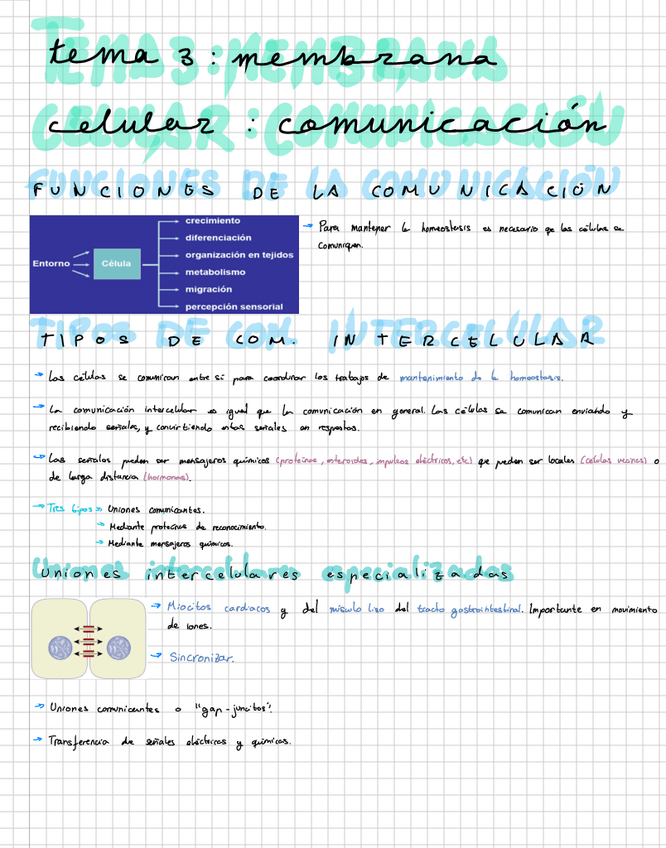 tema 3 : membrana
celular : comunicación
FUNCIONES DE LA COMUNICACIÓN
Entorno
Célula
crecimiento
diferenciación
organización en tejidos
metabolismo
migración
percepción sensorial
→ Para mantener la homeostasis es necesario que las células se
comuniquen.
TIPOS DE COM. INTERCELULAR
→ Las células se comunican entre sí para coordinar los trabajos de mantenimiento de la homeostasis.
→ La comunicación intercelular es igual que la comunicación en general. Las células se comunican enviando y
recibiendo señales, y convirtiendo estas señales en respuestas.
→ Las señales pueden ser mensajeros químicos (proteínas, esteroides, impulsos eléctricos, etc) que pueden ser locales (células vecinas) o
de larga distancia (hormonas).
→ Tres tipos → Uniones comunicantes.
→ Mediante proteínas de reconocimiento.
→ Mediante mensajeros químicos.
Uniones intercelulares especializadas
→ Miocitos cardíacos y del músculo liso del tracto gastrointestinal. Importante en movimiento
de iones.
→ Sincronizar.
→ Uniones comunicantes o "gap-juncitos".
→ Transferencia de señales eléctricas y químicas.